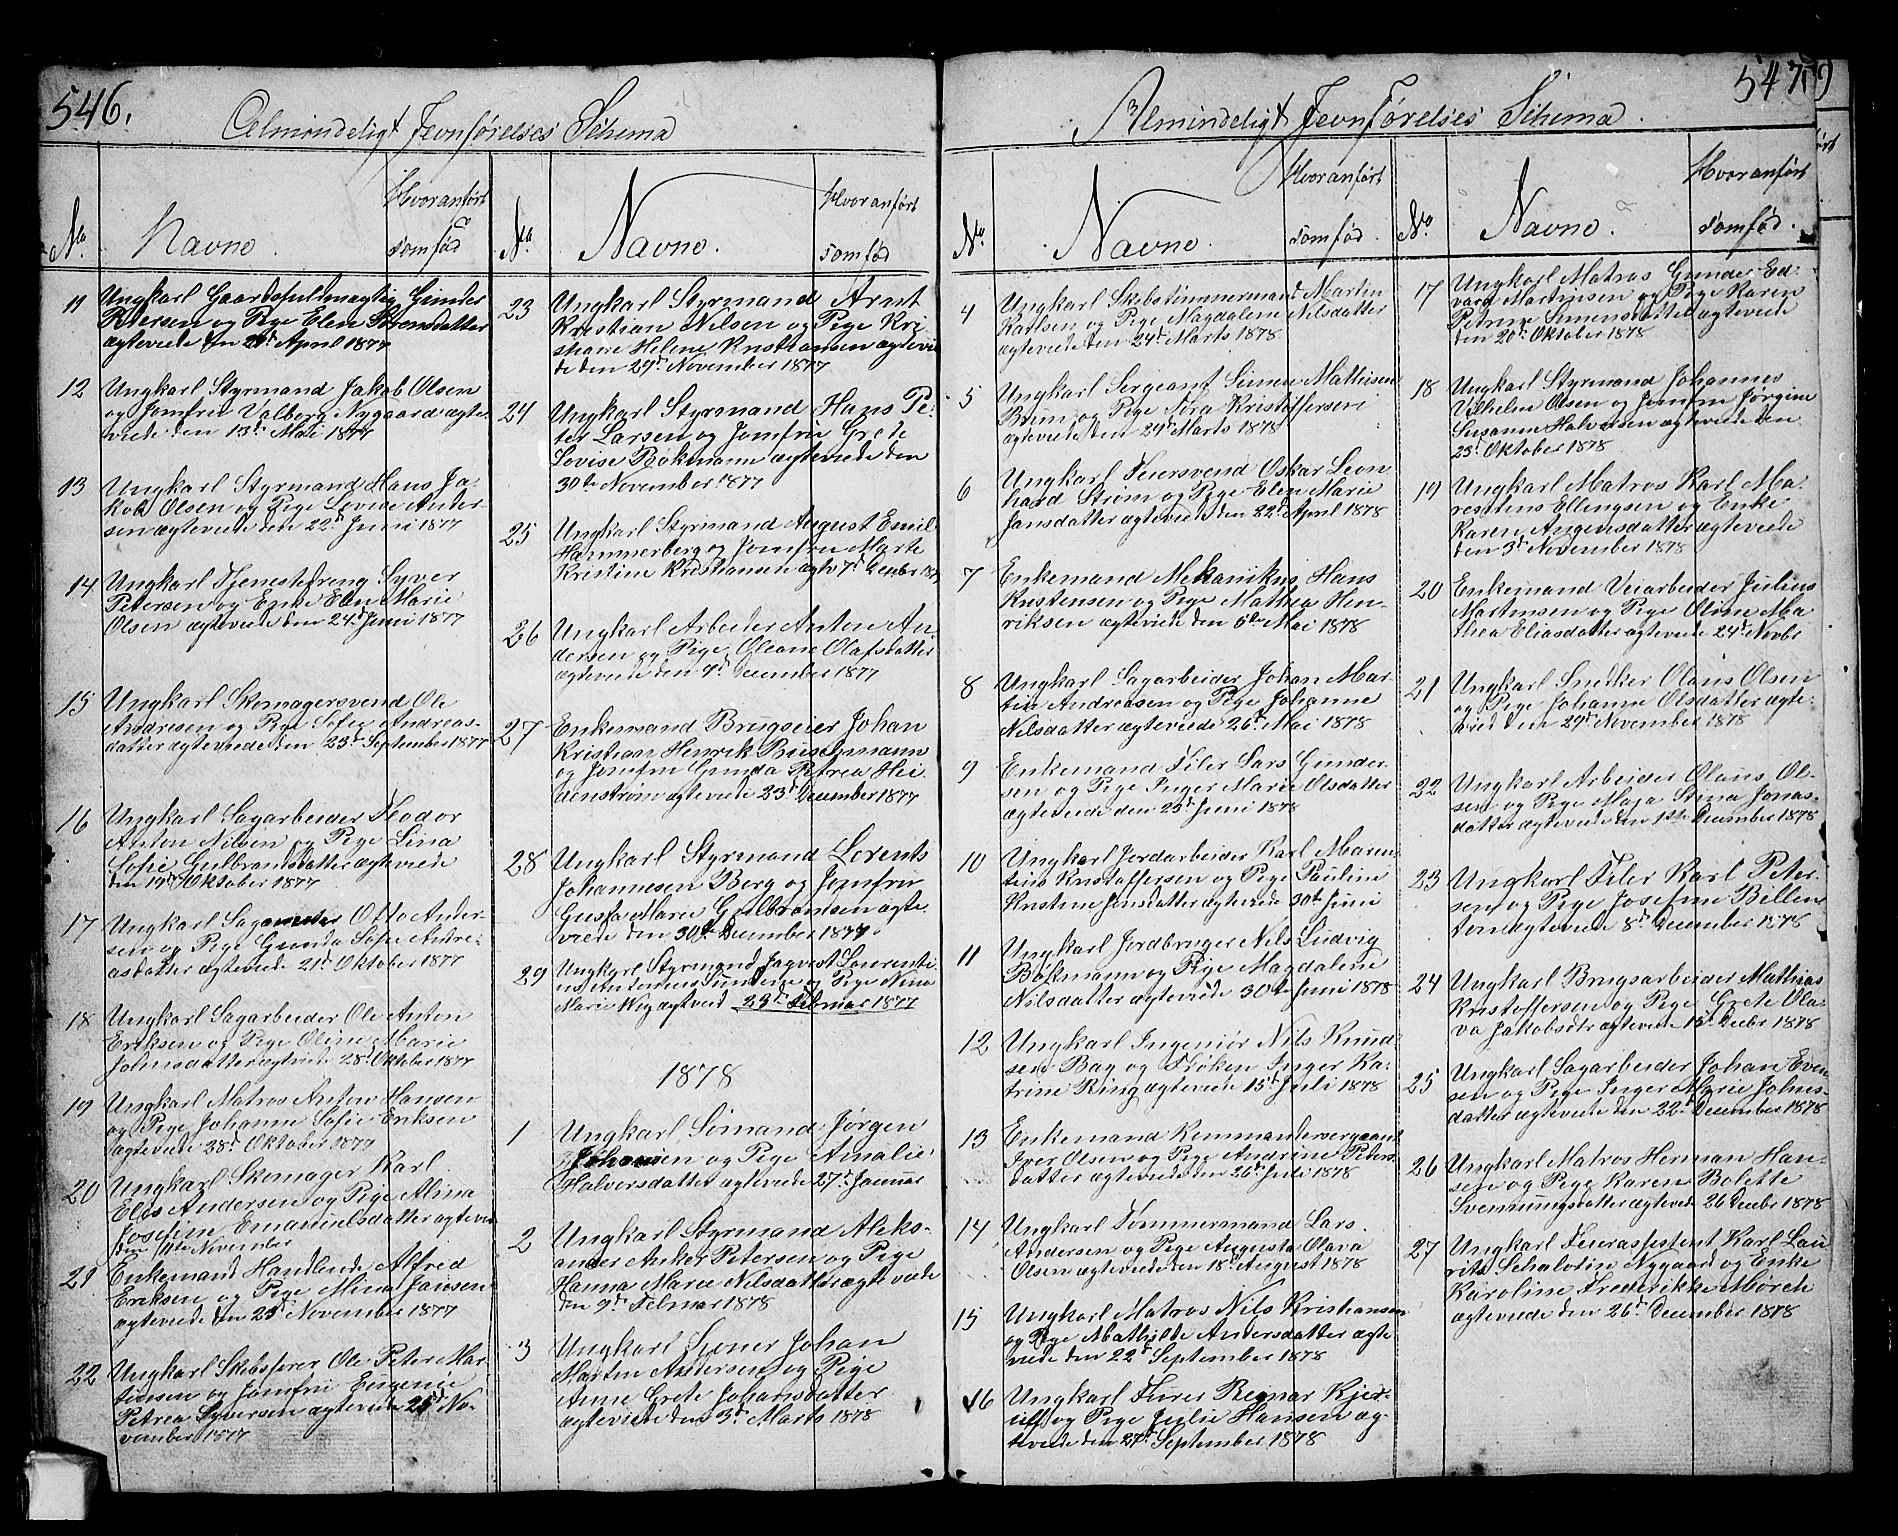 546.
Almindeligt Jevnførelses Schema
No. Navne. Hvoranført
somfød
11 Ungkarl Gaardsfuldmægtig Gunder
Petersen og Pige Elen
ægteviede den April 1877
12 Ungkarl Styrmand Jakob Olsen
og Jomfru Valborg Nygaard ægte-
viede den 13de Mai 1877
13 Ungkarl Styrmand Hans Ja-
kob Olsen og Pige Lovise Ander-
sen ægteviede den 22d Juni 1877
14 Ungkarl Tjenestefreng Syver
Petersen og Enke Elen Marie
Olsen ægteviede den 24d Juni 1877
15 Ungkarl Skomagersvend Ole
Andresen og Pige Sofie Andreas-
datter ægteviede den 23d September 1877
16 Ungkarl Sagarbeider Teodor
Anton Nilsen og Pige Lina
Sofie Gulbrandsdatter ægteviede
den Oktober 1877
17 Ungkarl Sagarbeider Otto Ander-
sen og Pige Gunda Sofie Andre-
asdatter ægteviede 21d Oktober 1877
18 Ungkarl Sagarbeider Ole Anton
Eriksen og Pige Oline Marie
Johnsdatter ægteviede 28d Oktober 1877
19 Ungkarl Matros Anton Hansen
og Pige Johanne Sofie Eriksen
ægteviede 28d Oktober 1877
20 Ungkarl Skomager Karl
Elis Andersen og Pige Alina
Josefine Emanuelsdatter ægtevie
den 11te November
21 Enkemand Handlende Alfred
Eriksen og Pige Mina Jansen
ægteviede den 23d November 1877
22 Ungkarl Skibsfører Ole Peter Mar-
tinsen og Jomfru Eugenie
Petrea Syversen ægteviede 25d No-
vember 1877
No. Navne. Hvoranført
somfød
23 Ungkarl Styrmand Arnt
Kristian Nilsen og Pige Kri-
stiane Helene Kristiansen ægtevie
de den 29d November 1877
24 Ungkarl Styrmand Hans Pe-
ter Larsen og Jomfru Grete
Lovise Bøkmann ægteviede den
30te November 1877
25 Ungkarl Styrmand August Emil
Hammerberg og Jomfru Marte
Kristine Kristiansen ægtv 7d Decmber 187
26 Ungkarl Arbeider Anton An-
dersen og Pige Oleane Olafsdatter
ægteviede den 9d December 1877
27 Enkemand Brugseier Johan
Kristian Henrik Buschmann
og Jomfru Gunda Petrea Hei
denstrøm ægteviede 23d December 1877
28 Ungkarl Styrmand Lorents
Johannesen Berg og Jomfru
Gusta Marie Gulbransen ægte
viede den 30te December 1877
29 Ungkarl Styrmand Laurenti
us Andersen og Pige Nina
Marie ægtevied 23d Februar 1877
1878
1 Ungkarl Sømand Jørgen
Johansen og Pige Amalie
Halversdatter ægteviede 27d Januar
2 Ungkarl Styrmand Aleks-
ander Anker Petersen og Pige
Hanna Marie Nilsdatter ægteviede
den 9d Februar 1878
3 Ungkarl Johan
Martin Andersen og Pige
Anne Grete Johansdatter
ægteviede den 3d Marts 1878
547
Almindeligt Jevnførelses Schema.
No. Navne. Hvoranført
somfød.
4 Ungkarl Skibstimmermand Martin
Karlsen og Pige Magdalene Nilsdatter
ægteviede den 24d Marts 1878
5 Ungkarl Sergeant Simen Mathisen
Brun og Pige Tora Kristoffersen
ægteviede den 29d Marts 1878
6 Ungkarl Feiersvend Oskar Leon
hard Strøm og Pige Elen Marie
Jansdatter ægteviede den 22d April 1878
7 Enkemand Mekanikus Hans
Kristensen og Pige Mathea Hen-
riksen ægteviede den 6te Mai 1878
8 Ungkarl Sagarbeider Johan Mar-
tin Andreasen og Pige Johanne
Nilsdatter ægteviede 26d Mai 1878
9 Enkemand Føler Lars Gunder-
sen og Pige Inger Marie Olsdatter
ægteviede den 23d Juni 1878
10 Ungkarl Jordarbeider Karl Maren-
tius Kristoffersen og Pige Pauline
Kristine Jensdatter ægteviede 30te Juni
11 Ungkarl Jordbruger Nils Ludvig
Bøkmann og Pige Magdalene
Nilsdatter ægteviede 30te Juni 1878
12 Ungkarl Ingeniør Nils Knud
sen Bay og Frøken Inger Ka-
trine Ring ægteviede 15d Juli 1878
13 Enkemand Kommandersergeant
Iver Olsen og Pige Andrine Peters
datter ægteviede den 26d Juli 1878
14 Ungkarl Tømmermand Lars
Andersen og Pige Augusta Olava
Olsen ægteviede den 18d August 1878
15 Ungkarl Matros Nils Kristiansen
og Pige Mathilde Andersdatter ægte
viede den 22d September 1878
16 Ungkarl Furer Regnar Kjer-
ulf og Pige Julie Hansen æg-
teviede den 27d September 1878
No. Navne. Hvoranført
somfød.
17 Ungkarl Matros Gunder Ed-
vard Martinsen og Pige Karen
Petrine Simensdatter ægteviede
den 20d Oktober 1878
18 Ungkarl Styrmand Johannes
Vilhelm Olsen og Jomfru Jørgine
Susanne Halvorsen ægteviede den
23d Oktober 1878
19 Ungkarl Matros Karl Ma-
rentius Ellingsen og Enke
Karen Angensdatter ægteviede
den 3d November 1878
20 Enkemand Veiarbeider Julius
Martinsen og Pige Oline Ma
thea Eliasdatter ægteviede 24d Novbr
21 Ungkarl Snedker Olaus Olsen
og Pige Johanne Olsdatter ægte-
vied den 29d November 1878
22 Ungkarl Arbeider Olaus Ol-
sen og Pige Maja Stina Jonas-
datter ægteviede den 1ste December 1878
23 Ungkarl Føler Karl Peter-
sen og Pige Josefine Billen
ten ægteviede 8d December 1878
24 Ungkarl Brugsarbeider Mathias
Kristoffersen og Pige Grete Ola-
va Jakobsdtr ægteviede 15d Decbr 1878
25 Ungkarl Sagarbeider Johan Even
sen og Pige Inger Marie Johns-
datter ægteviede den 22d December 1878
26 Ungkarl Matros Herman Han-
sen og Pige Karen Bolette
Svennungsdatter ægteviede 26 Decbr 1878
27 Ungkarl Karl Lau
rits Schalvin Nygaard og Enke
Karoline Frederikke Mørch
ægteviede den 26d December 1878